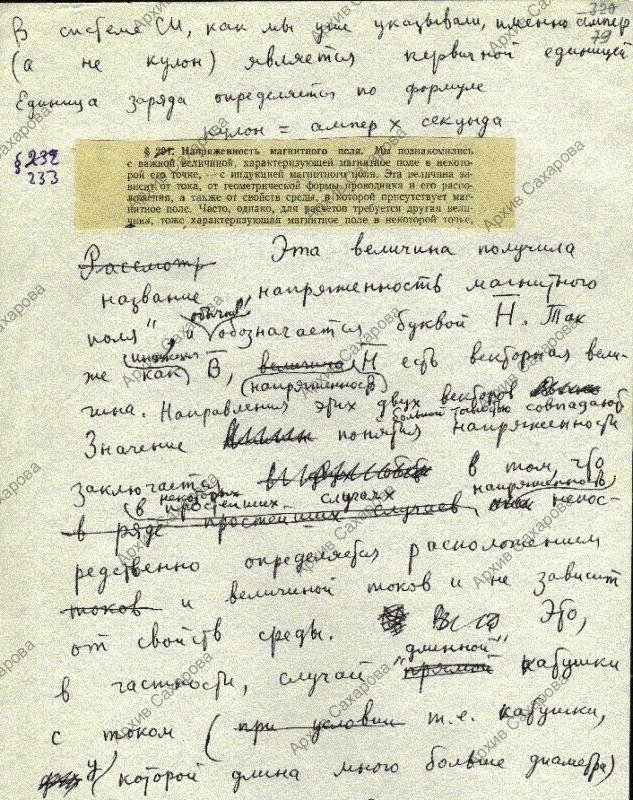 320
79
В системе СИ, как мы уже указывали, именно ампер
(а не кулон) является первичной единицей
Единица заряда определяется по формуле
кулон = ампер х секунда
§ 232
233
§ 201. Напряженность магнитного поля. Мы познакомились
с важной величиной, характеризующей магнитное поле в некото-
рой его точке, — с индукцией магнитного поля. Эта величина за-
висит от тока, от геометрической формы проводника и его распо-
ложения, а также от свойств среды, в которой присутствует маг-
нитное поле. Часто, однако, для расчетов требуется другая вели-
чина, тоже характеризующая магнитное поле в некоторой точке,
Рассмотр Эта величина получила
название „напряженность магнитного
поля", и обычно обозначается буквой H. Так
же как (индукция) B, величина H (напряженность) есть векторная вели-
чина. Направления этих двух векторов
большей частью совпадают
Значение понятия напряженности
заключается в том, что
(в некоторых простейших случаях напряженность)
в ряде простейших случаев, непос-
редственно определяется расположением
токов и величиной токов и не зависит
от свойств среды. Это,
в частности, случай "длинной" прямой катушки
с током (при условии т.е. катушки,
у которой длина много больше диаметра)
Архив Сахарова